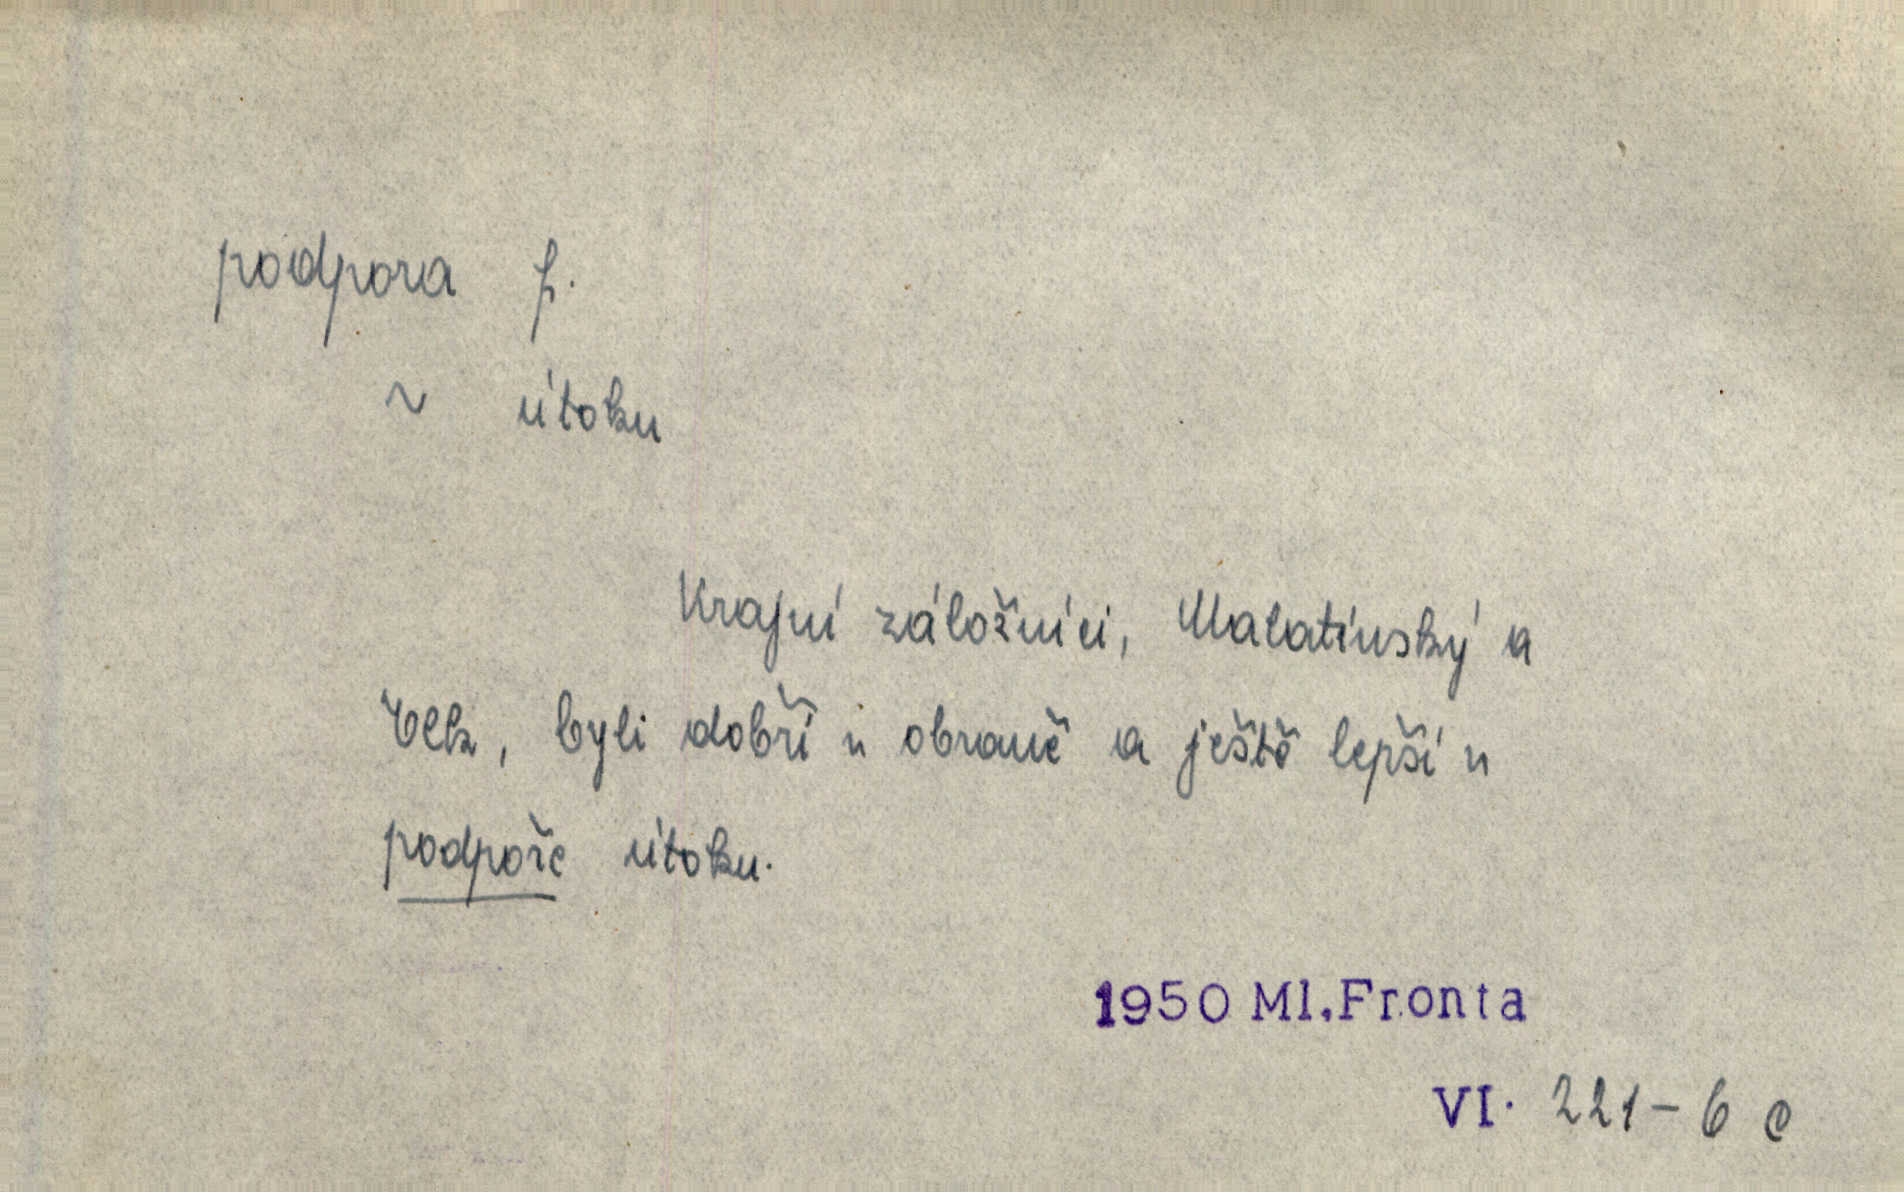 podpora f.
~ útoku
Krajní záložníci, Malatinský a
Vlk, byli dobří v obraně a ještě lepší v
podpoře útoku.
1950 Ml.Fronta
VI. 221-6 c